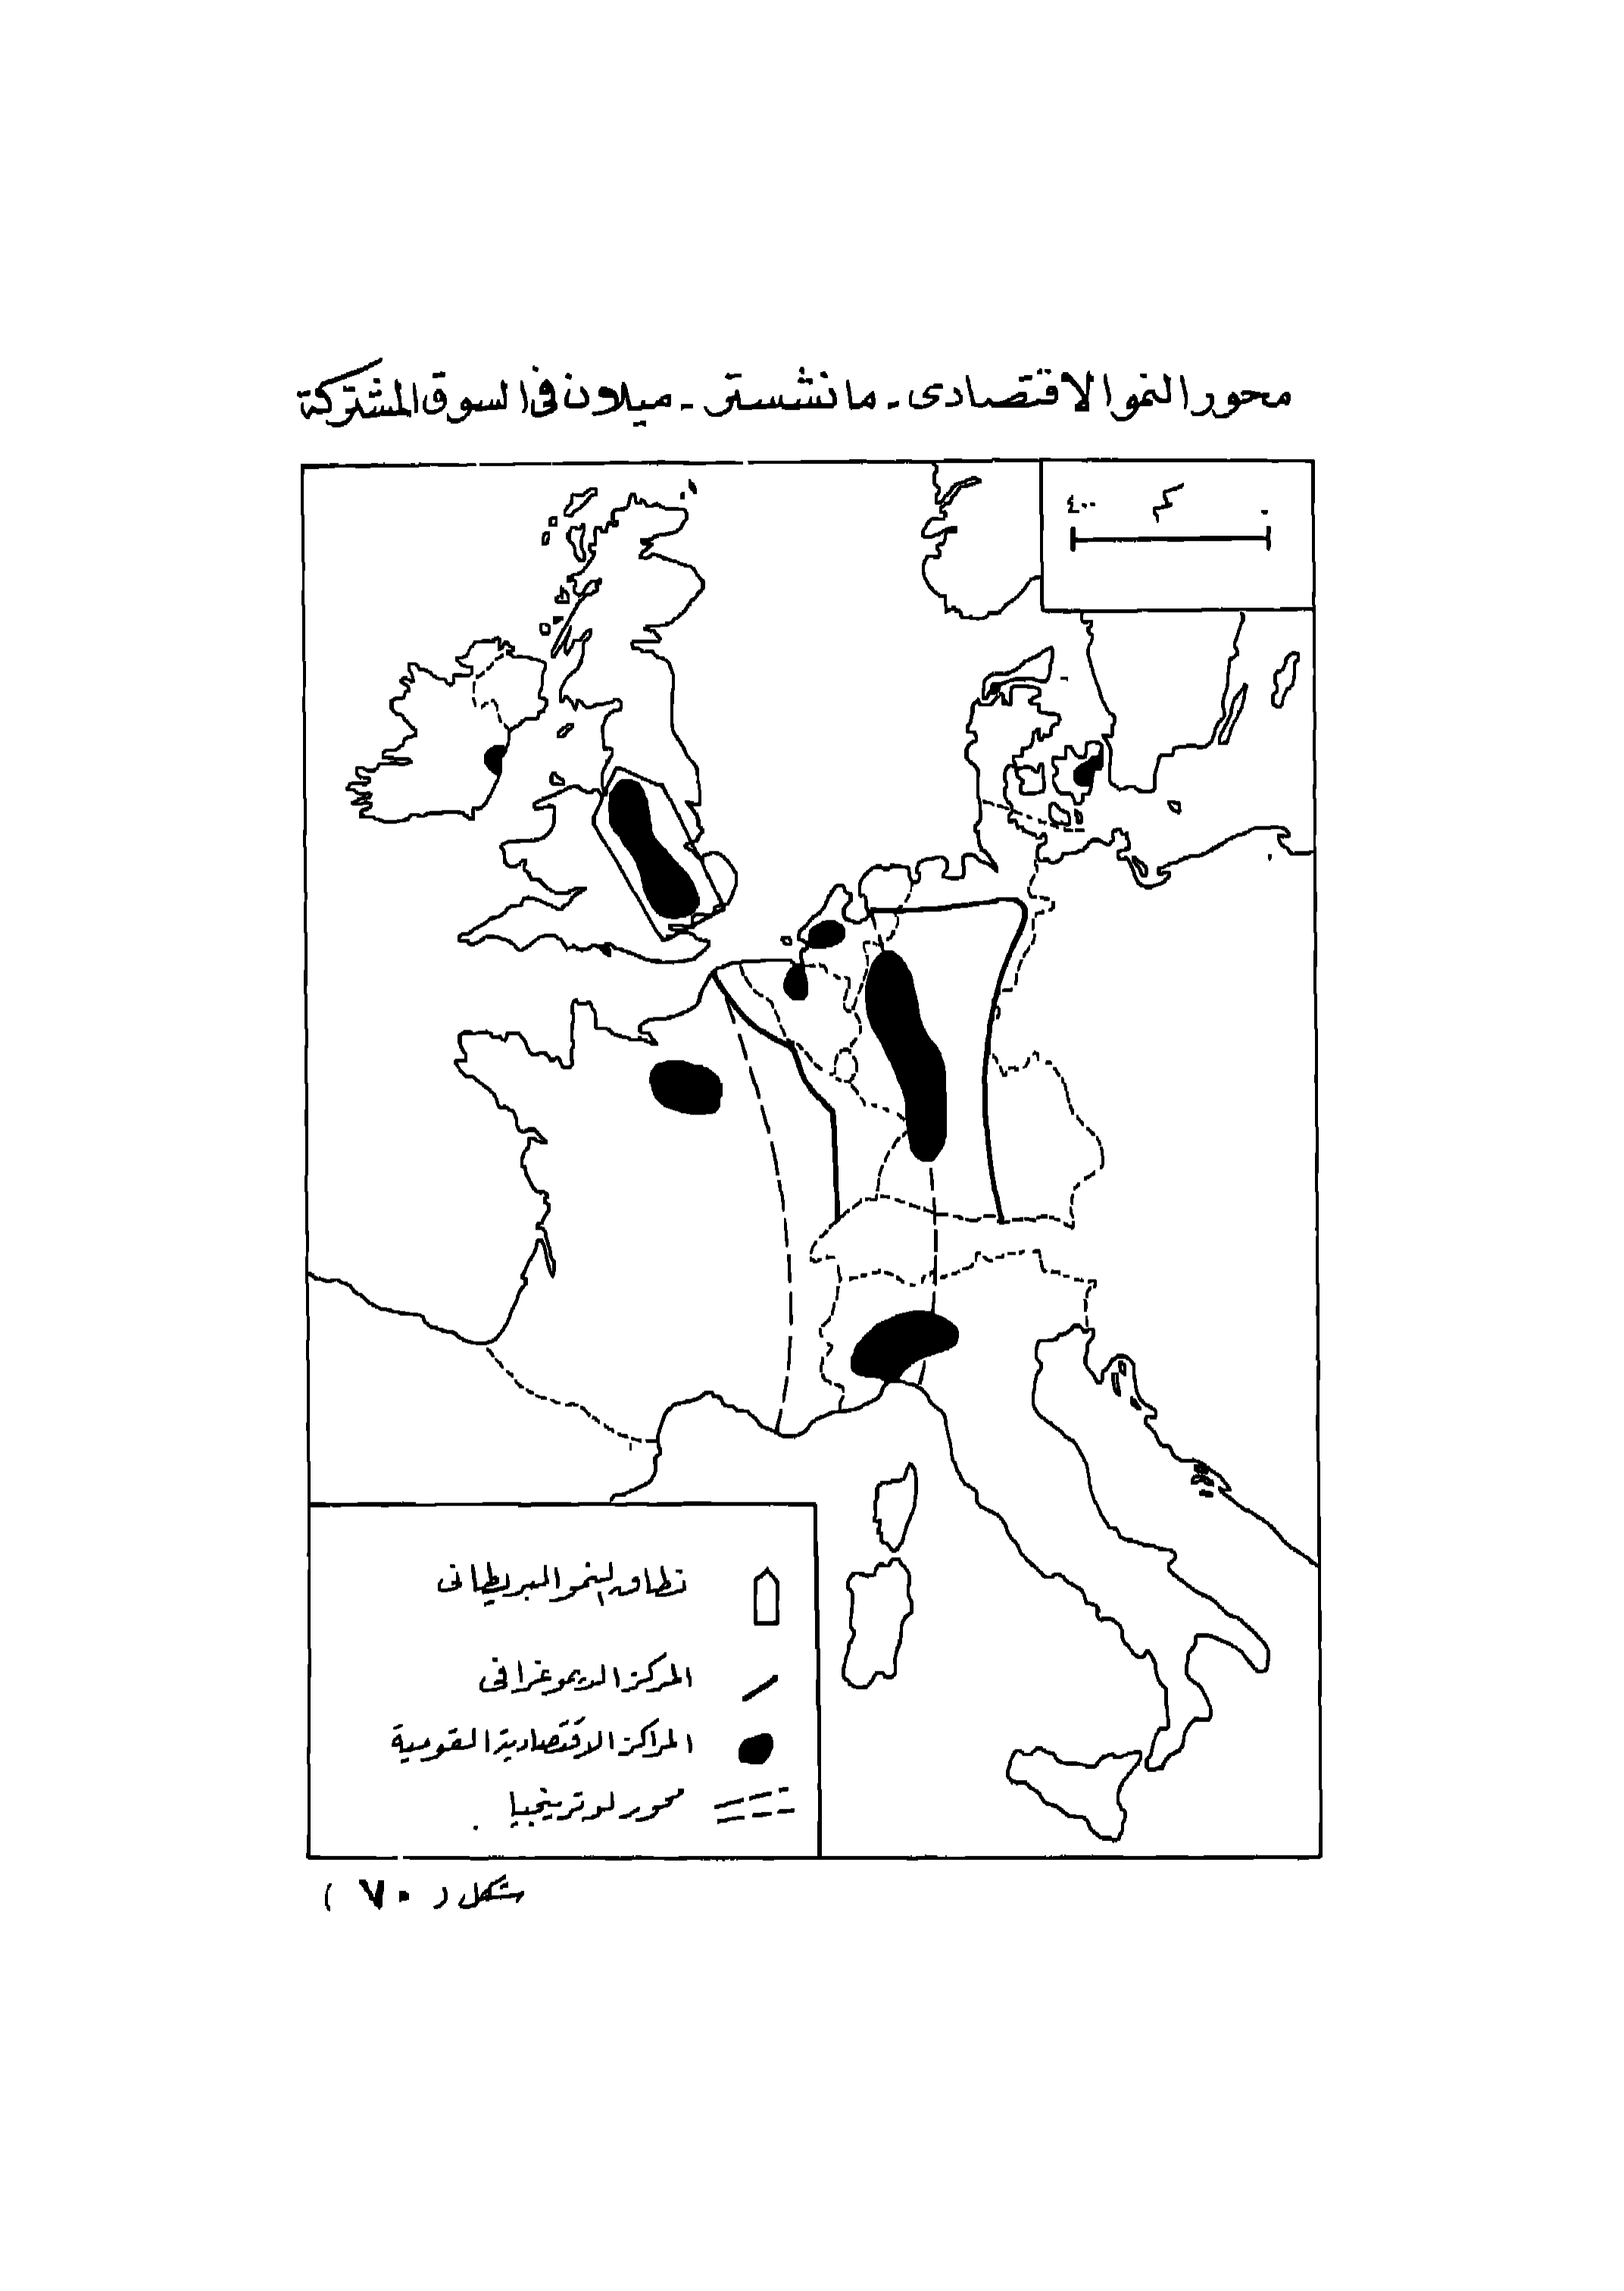 محور النمو الاقتصادى - مانشستر - ميلان فى السوق المشتركة
٤٠٠ كم ٠
نطاق النمو البريطانى
المركز الديموغرافى
المراكز الاقتصادية القومية
محور لوترينجيا
شكل ( ٧٠ )